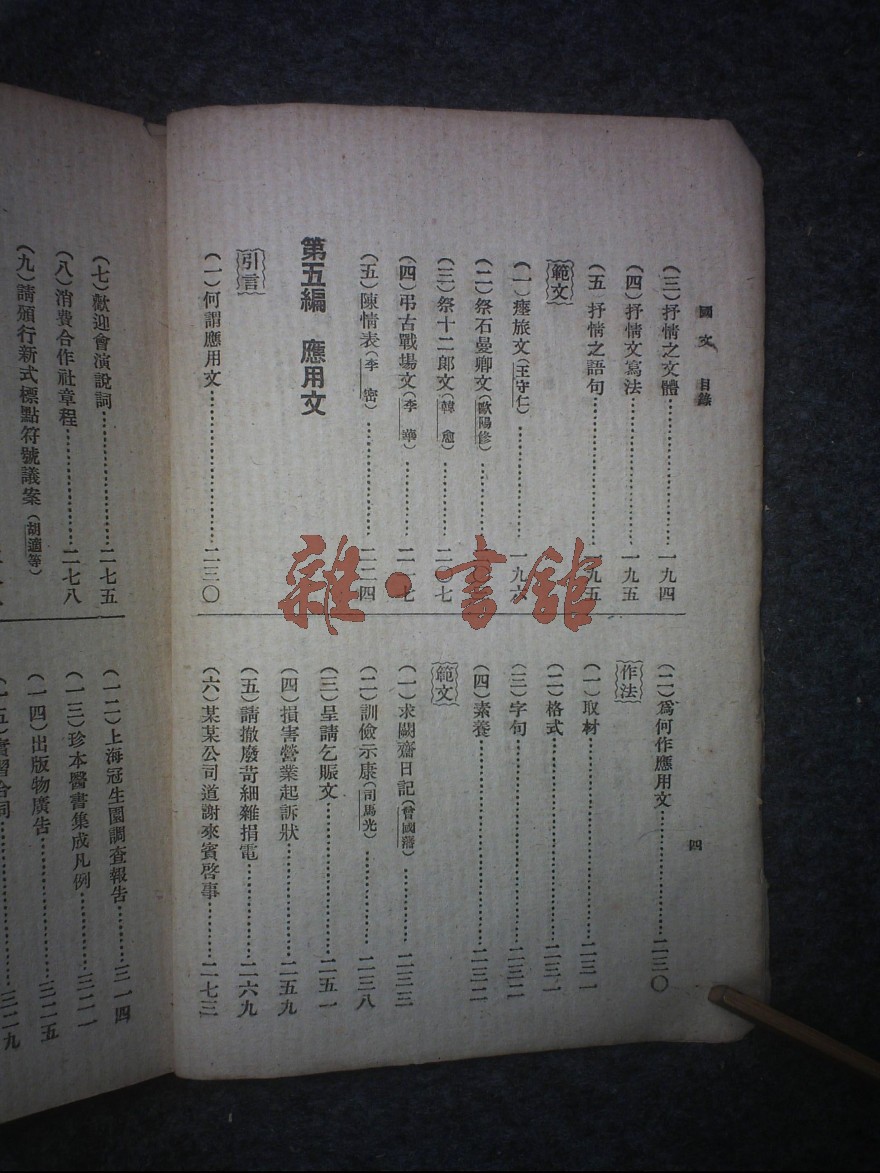 國文 目錄
四
(三)抒情之文體……一九四
(四)抒情文寫法……一九五
(五)抒情之語句……一九五
範文
(一)瘞旅文(王守仁)……一九六
(二)祭石曼卿文(歐陽修)……二〇
(三)祭十二郎文(韓愈)……二〇七
(四)弔古戰場文(李華)……二一七
(五)陳情表(李密)……二二四
第五編 應用文
引言
(一)何謂應用文……二三〇
(二)爲何作應用文……二三〇
作法
(一)取材……二三一
(二)格式……二三一
(三)字句……二三二
(四)素養……二三二
範文
(一)求闕齋日記(曾國藩)……二三三
(二)訓儉示康(司馬光)……二三八
(三)呈請乞賑文……二五一
(四)損害營業起訴狀……二五九
(五)請撤廢苛細雜捐電……二六九
(六)某某公司道謝來賓啓事……二七三
(七)歡迎會演說詞……二七五
(八)消費合作社章程……二七八
(九)請頒行新式標點符號議案(胡適等)
(一二)上海冠生園調查報告……三一四
(一三)珍本醫書集成凡例……三二一
(一四)出版物廣告……三二五
(一五)實習合同……三二九
雜·書館